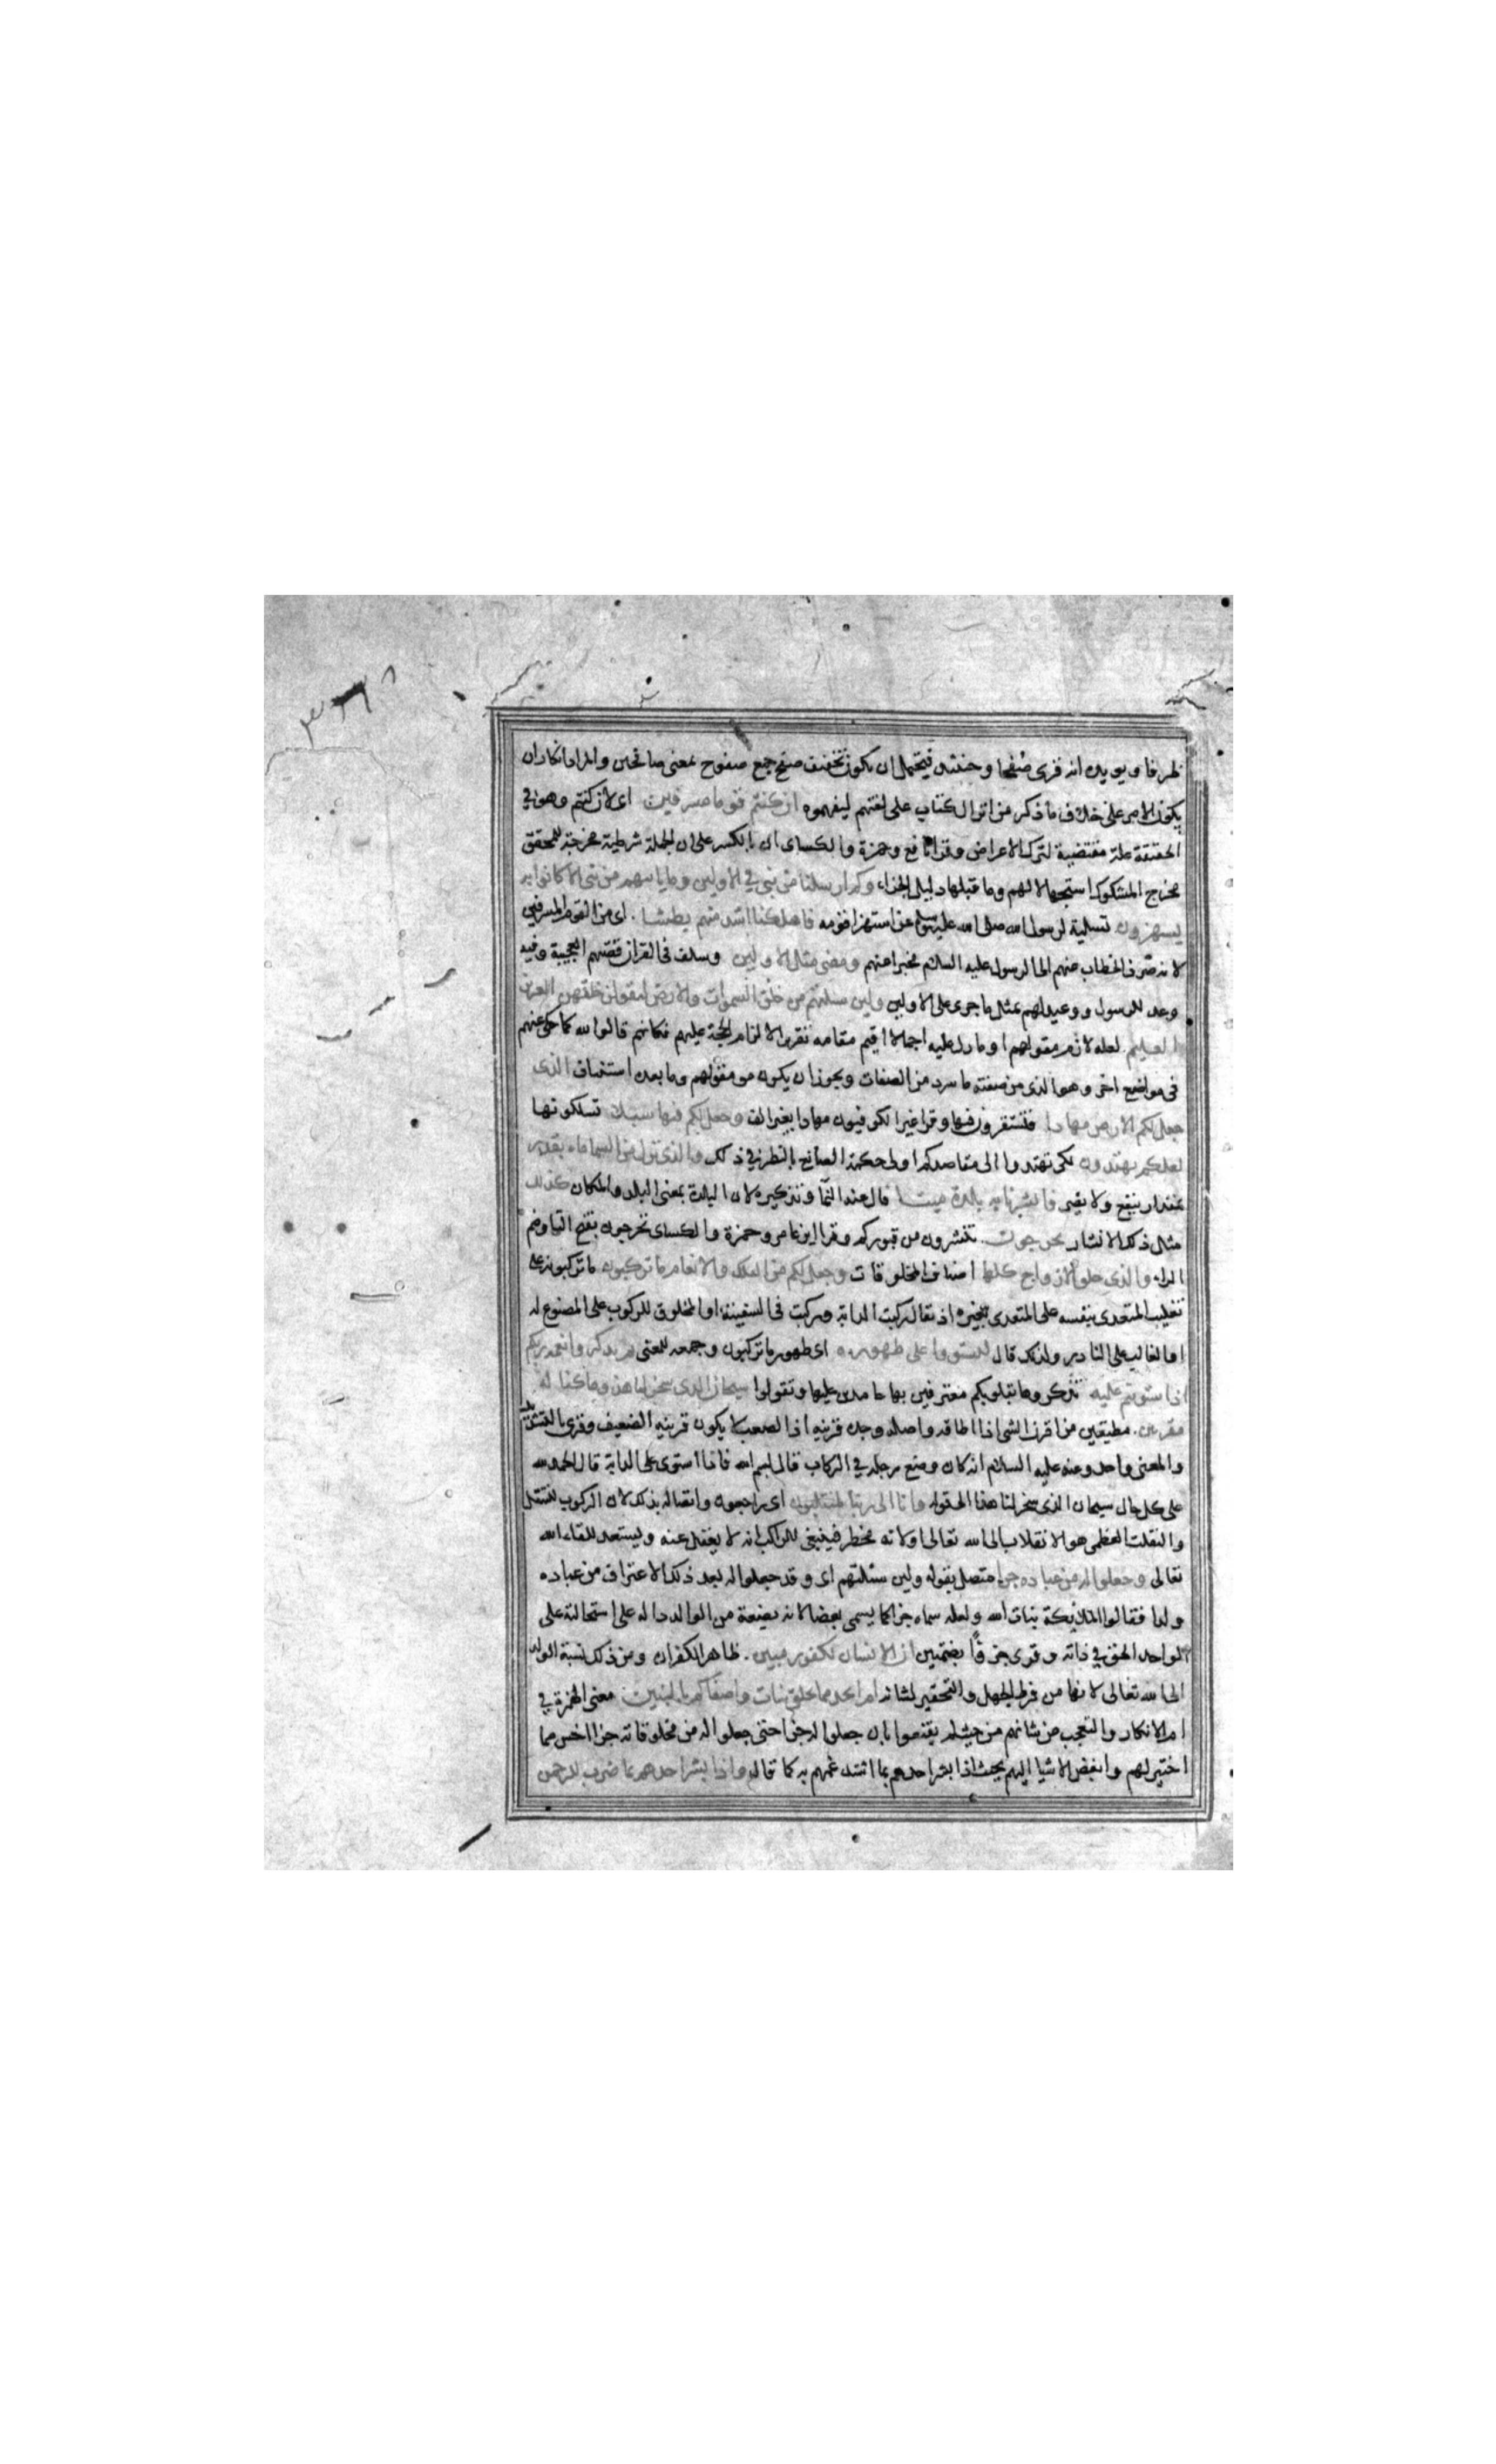 ظرفا ويويده انه قرى صفحا وحينئذ فيحتمل ان يكون تخفيف صفح جمع صفوح بمعنى صافحين والمراد انكار ان
يكون الامر على خلاف ما ذكر من انزال كتاب على لغتهم ليفهموه ان كنتم قوما مسرفين اى لان كنتم وهو في
الحقيقة علة مقتضية لترك الاعراض وقرا نافع وحمزة والكساى ان بالكسر على ان الجملة شرطية مخرجة للمحقق
مخرج المشكوك استجهالا لهم وما قبلها دليل الجزاء وكم ارسلنا من نبى في الاولين وما ياتيهم من نبى الا كانوا به
يستهزون تسلية لرسول الله صلى الله عليه وسلم عن استهزا قومه فاهلكنا اشد منهم بطشا اى من القوم المسرفين
لانه صرف الخطاب عنهم الى الرسول عليه السلام مخبرا عنهم ومضى مثل الاولين وسلف فى القران قصتهم العجيبة وفيه
وعد للرسول ووعيد لهم بمثل ما جرى على الاولين ولين سئلتهم من خلق السموات والارض ليقولن خلقهن العزيز
العليم لعله لازم مقولهم او ما دل عليه اجمالا اقيم مقامه تقريرا لالزام الحجة عليهم فكانهم قالوا الله كما حكى عنهم
فى مواضع اخر وهو الذى من صفته ما سرد من الصفات ويجوز ان يكون هو مقولهم وما بعده استئناف الذى
جعل لكم الارض مهادا فتستقرون فيها وقرا غير الكوفيون مهادا بغير الف وجعل لكم فيها سبلا تسلكونها
لعلكم تهتدون لكى تهتدوا الى مقاصدكم او لى حكمة الصانع بالنظر في ذلك والذى نزل من السماء ماء بقدر
بمقدار ينفع ولا يضر فانشرنا به بلدة ميتا مال عنه النما وتذكيره لان البلدة بمعنى البلد والمكان كذلك
مثل ذلك الانشار تخرجون تنشرون من قبوركم وقرا ابن عامر وحمزة والكساى تخرجون بفتح التا وضم
الراء والذي خلق الازواج كلها اصناف المخلوقات وجعل لكم من الفلك والانعام ما تركبون ما تركبونه على
تغليب المتعدى بنفسه على المتعدى بغيره اذ يقال ركبت الدابة وركبت فى السفينة او المخلوق للركوب على المصنوع له
او الغالب على النادر ولذلك قال لتستووا على ظهوره اى ظهور ما تركبون وجمعه للمعنى ثم تذكروا نعمة ربكم
اذا ستويتم عليه تذكروها بقلوبكم معترفين بها حامدين عليها وتقولوا سبحان الذى سخر لنا هذا وما كنا له
مقرنين مطيقين من اقرن الشى اذا اطاقه واصله وجد قرينه اذ الصعب لا يكون قرينه الضعيف وقرى بالتشديد
والمعنى واحد وعنه عليه السلام انه كان وضع رجله في الركاب قال بسم الله فاذا استوى على الدابة قال الحمد لله
على كل حال سبحان الذى سخر لنا هذا الى قوله وانا الى ربنا لمنقلبون اى راجعون واتصاله بذلك لان الركوب للتنقل
والنقلة العظمى هو الانقلاب الى الله تعالى اولانه مخطر فينبغى للراكب ان لا يغفل عنه ويستعد للقاء الله
تعالى وجعلوا له من عباده جزا متصل بقوله ولين سئلتهم اى وقد جعلوا له بعد ذلك الاعتراف من عباده
ولدا فقالوا الملائكة بنات الله ولعله سماه جزا كما يسمى بعضا لانه بضعة من الوالد دالة على استحالته على
الواحد الحق في ذاته وقرى جزؤا بضمتين ان الانسان لكفور مبين ظاهر الكفران ومن ذلك نسبة الولد
الى الله تعالى لانها من فرط الجهل والتحقير لشانه ام اتخذ مما يخلق بنات واصفاكم بالبنين معنى الهمزة في
ام الانكار والتعجب من شانهم من حيث لم يقنعوا بان جعلوا له جزا حتى جعلوا له من مخلوقاته جزا اخس مما
اختير لهم وابغض الاشيا اليهم بحيث اذا بشر احدهم بها اشتد غمهم به كما قال واذا بشر احدهم بما ضرب للرحمن